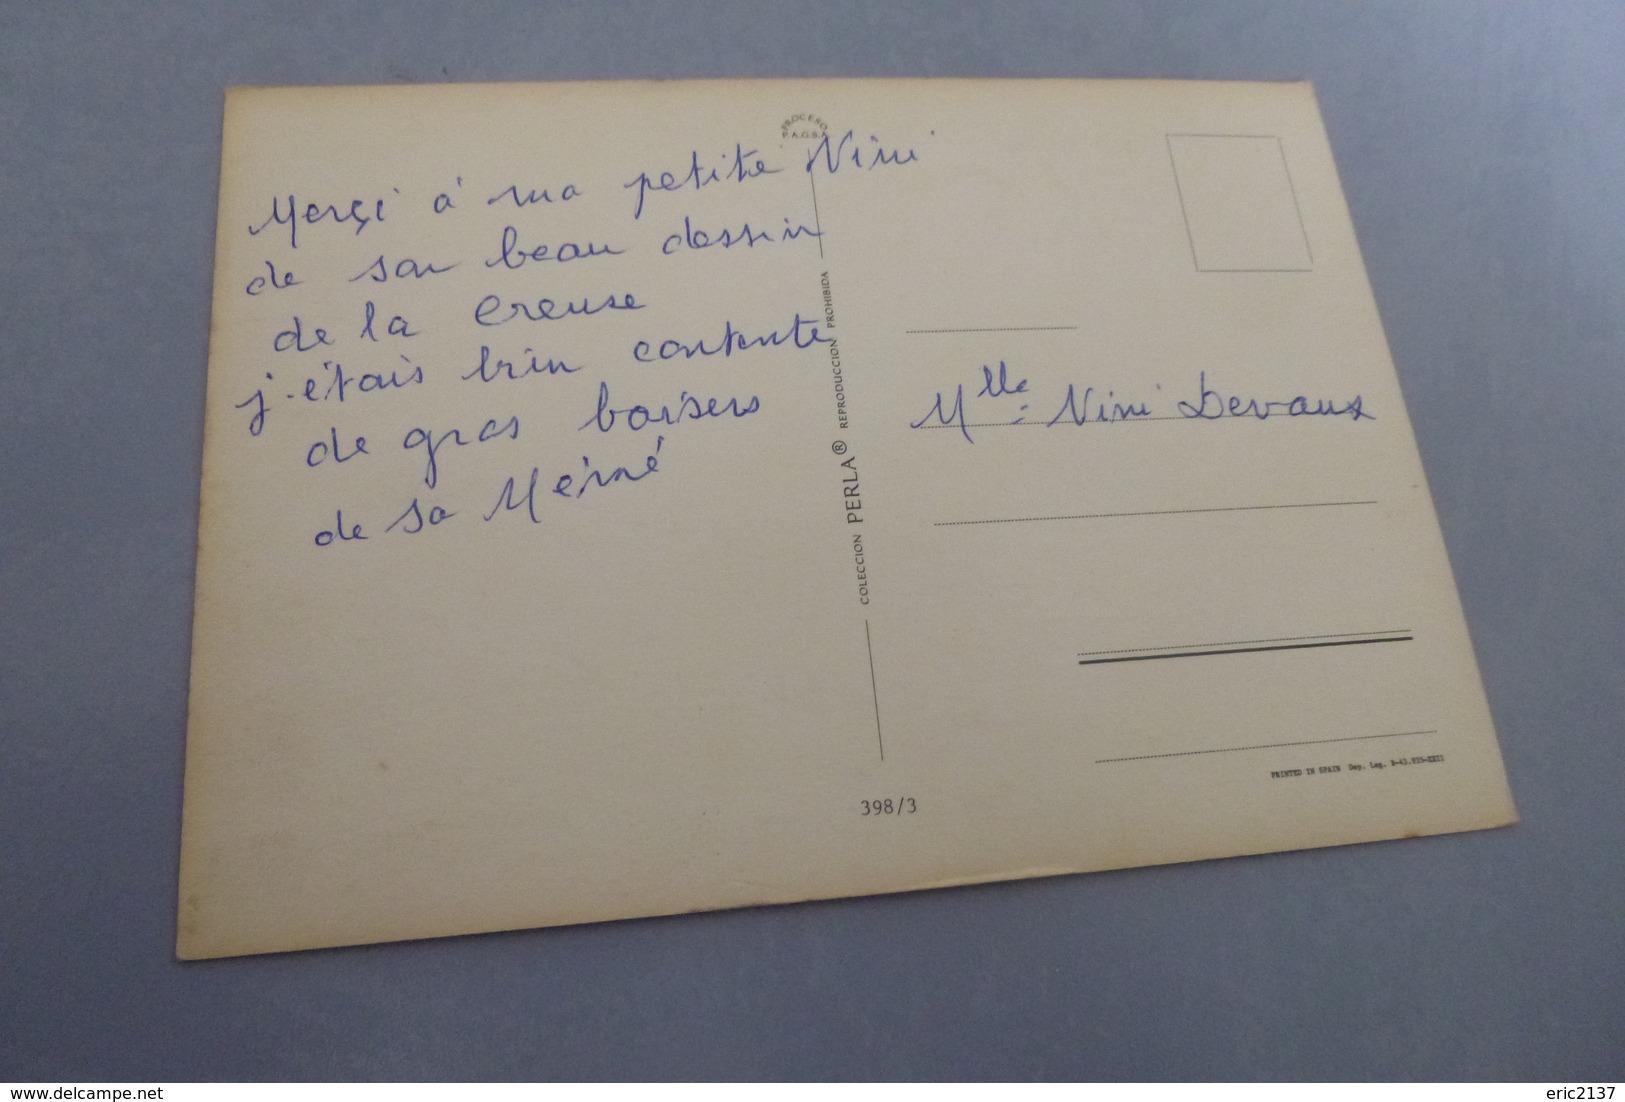 Merçi à ma petite Nini
de son beau dessin
de la Creuse
j'étais bien contente
de gros baisers
de sa Mémé
PROCESO
A.G.S.A
COLECCION PERLA® REPRODUCCION PROHIBIDA
398/3
Mlle Nini Devaux
PRINTED IN SPAIN Dep. Leg.
www.delcampe.net
eric2137